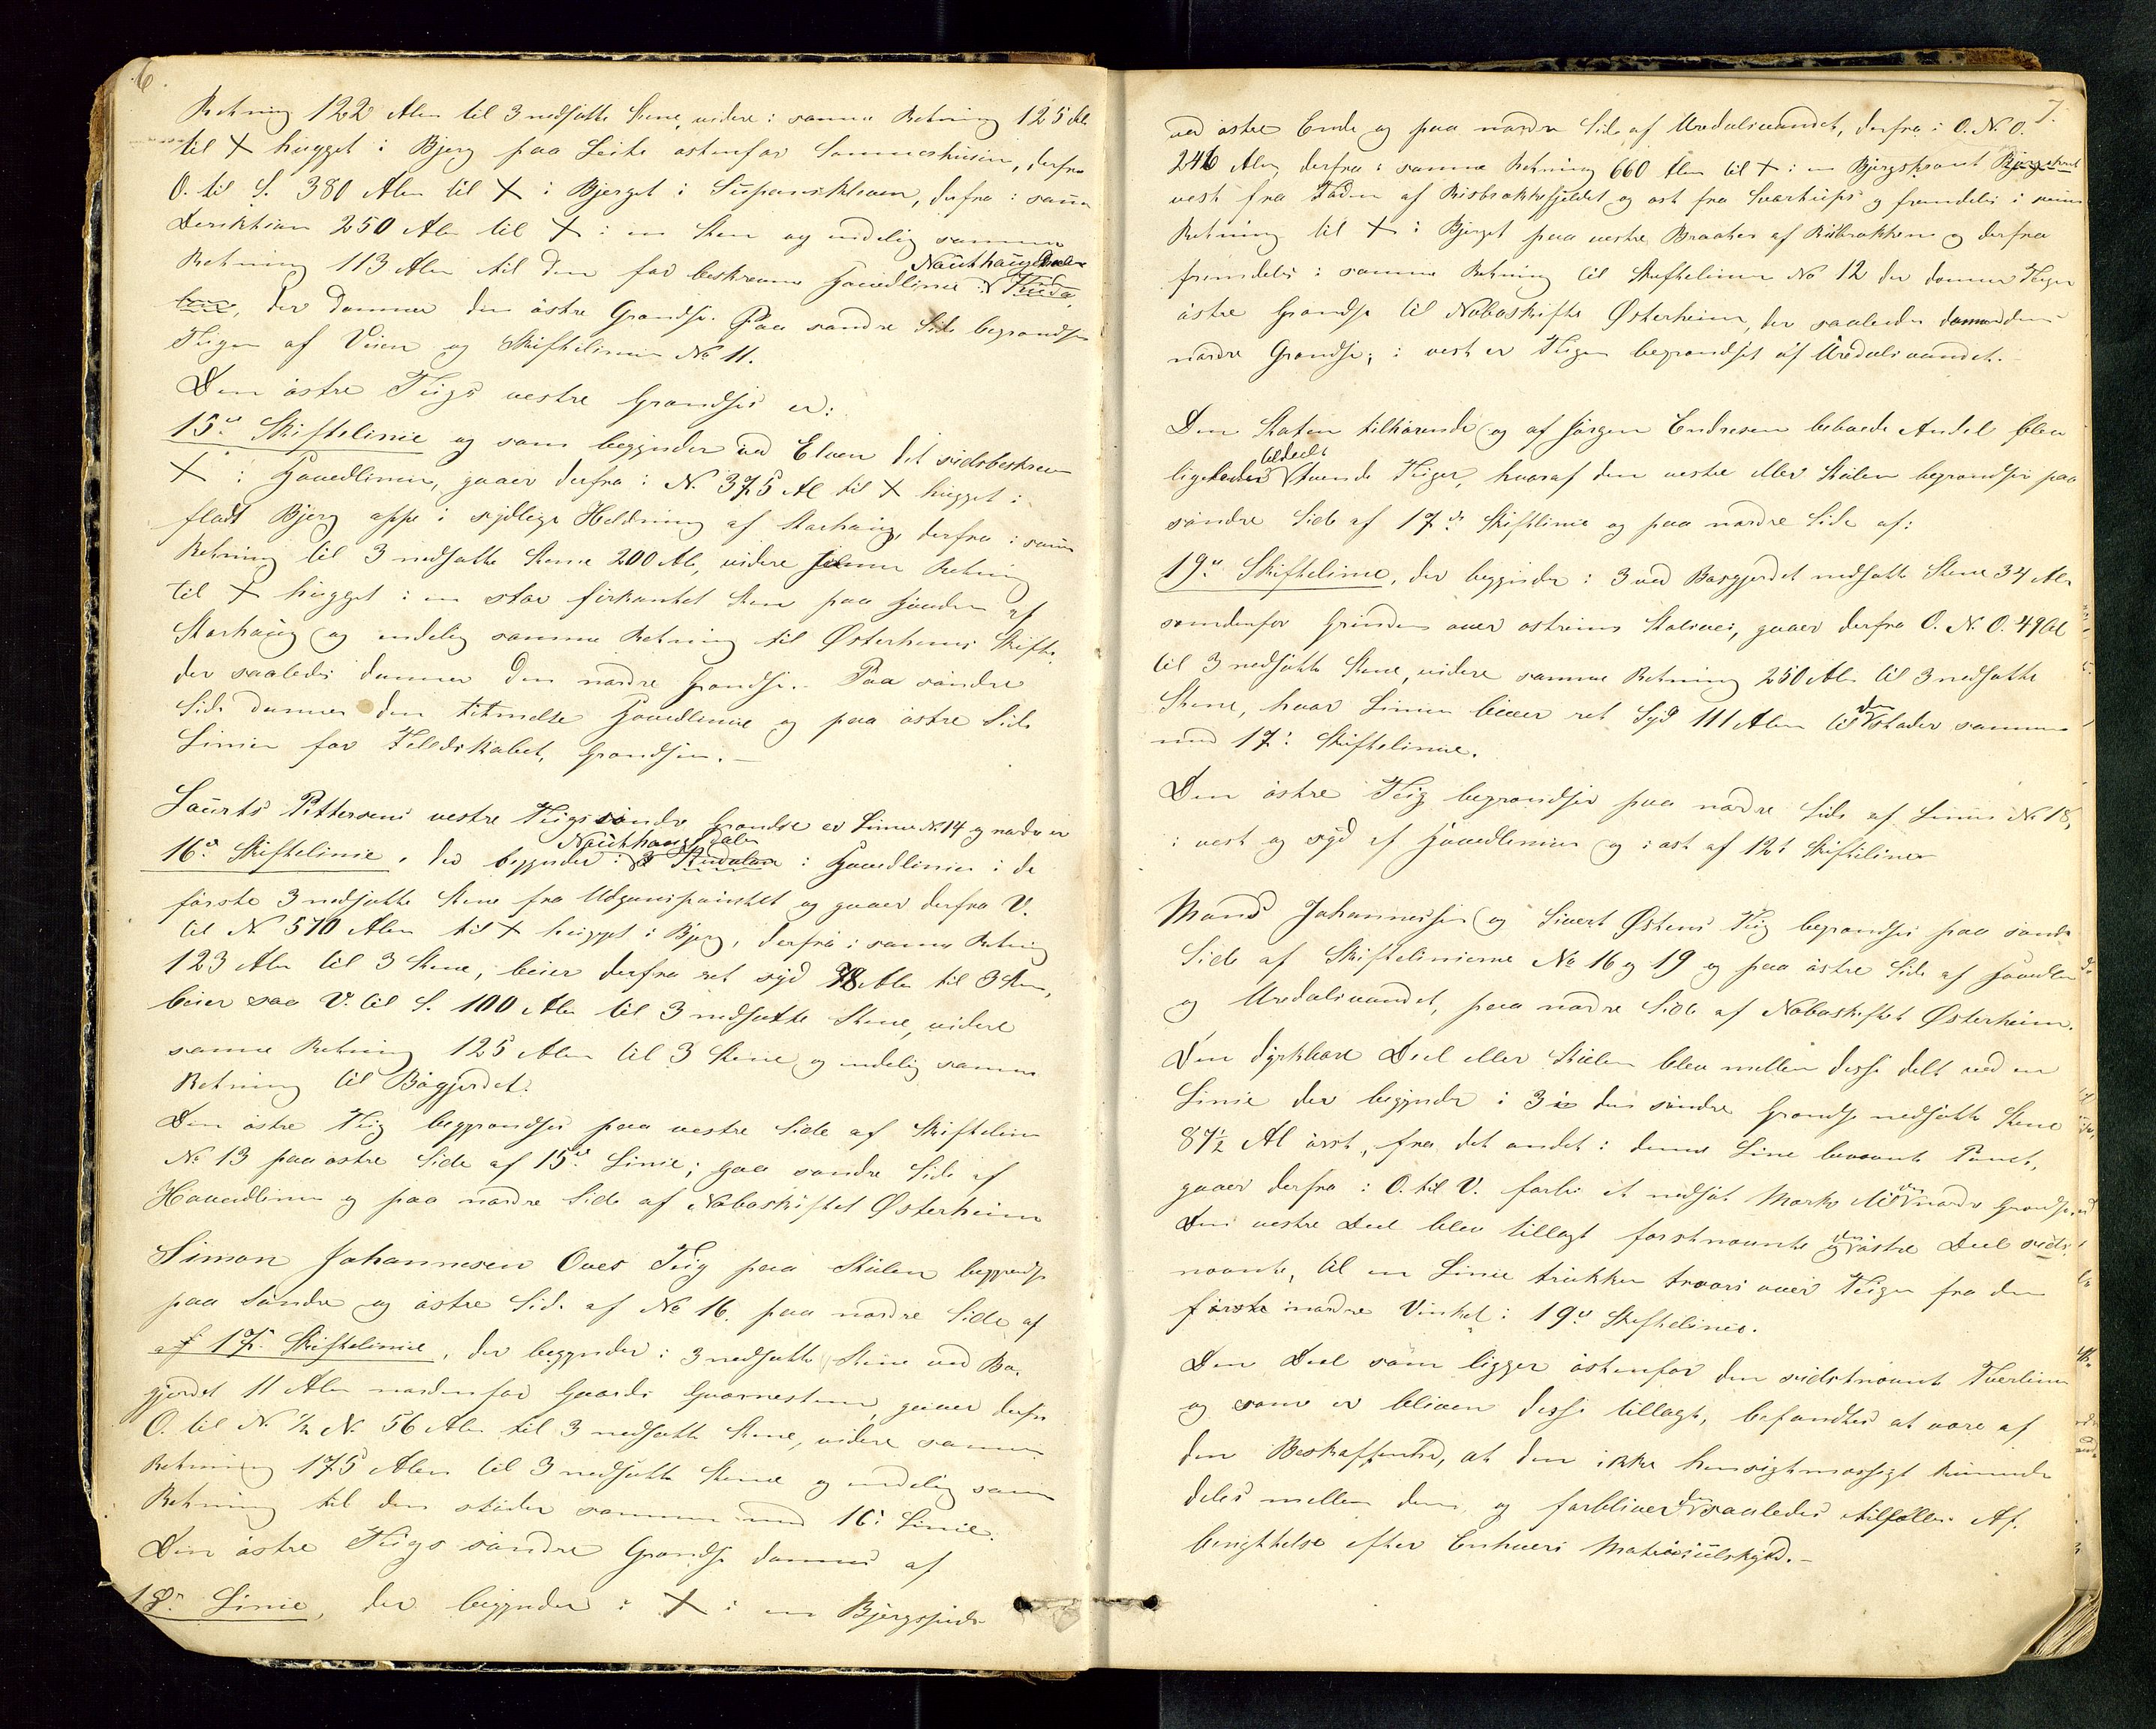 6
Retning 122 Alen til 3 nedsatte Stene, videre i samme Retning 125 Al.
til + hugget i Bjerg paa Leite østenfor Sommerhusene, derfra
O. til S. 380 Alen til + i Bjerget i derfra i samme
Deriktion 250 Alen til + i en Sten og endelig samme
Retning 113 Alen til den før beskrevne Hovedlinie i Nauthaugdalen
der danner den østre Grændse. Paa søndre Side begrændses
Teigen af Veien og Skiftelinien No 11.
Den østre Teigs vestre Grændse er:
15de Skiftelinie og som begynder ved Elven det sidstbeskrevne
+ i Hovedlinien, gaaer derfra i N. 375 Al til + hugget i
fladt Bjerg oppe i sydlige Heldning af Storhaug, derfra i samme
Retning til 3 nedsatte Stene 200 Al, videre samme Retning
til + hugget i en stor firkantet Sten paa Høiden af
Storhaug og endelig samme Retning til Østerheims Skifte,
der saaledes danner den nordre Grændse. Paa søndre
Side danner den titmeldte Hovedlinie og paa østre Side
Linien for Fælledskabet, Grændsen.
Laurits Pettersens vestre Teigs søndre Grændse er Linie No 14 og nordre er
16de Skiftelinie, der begynder i Nauthaugdalen i Hovedlinien i de
første 3 nedsatte Stene fra Udganspunktet og gaaer derfra V.
til N 570 Alen til + hugget i Bjerg, derfra i samme Retning
123 Alen til 3 Stene, beier derfra ret syd 78 Alen til 3 Stene,
beier saa V. til S. 100 Alen til 3 nedsatte Stene, videre
samme Retning 125 Alen til 3 Stene og endelig samme
Retning til Bøgjerdet.
Den østre Teig begrændses paa vestre Side af Skiftelinie
No 13 paa østre Side af 15de Linie; paa søndre Side af
Hovedlinien og paa nordre Side af Naboskiftet Østerheim
Simon Johannesen Oves Teig paa Stølen begrændses
paa Søndre og østre Side af No 16. paa nordre Side af
af 17de Skiftelinie, der begynder i 3 nedsatte Stene ved Bø-
gjerdet 11 Alen nordenfor Gaards Qværnesteen, gaaer derfra
O. til N ½ N. 56 Alen til 3 nedsatte Stene, videre samme
Retning 175 Alen til 3 nedsatte Stene og endelig samme
Retning til den støder sammen med 16de Linie.
Den østre Teigs søndre Grændse dannes af
18de Linie, der begynder i + i en Bjergside
7.
ved østre Ende og paa nordre Side af Uredalsvandet, derfra i O. N. O.
246 Alen derfra i samme Retning 660 Alen til + i en Bjergskrænt
vest fra Foden af Risbrækkefjeldet og øst fra og fremdeles i samme
Retning til + i Bjerget paa vestre af Risbrækken og derfra
fremdeles i samme Retning til Skiftelinie No 12 der danner Teigen
østre Grændse til Naboskifte Østerheim, der saaledes danner den
nordre Grændse; i vest er Teigen begrændset af Uredalsvandet.
Den Staten tilhørende og af Jørgen Endresen beboede Andel blev
ligeledes tildeelt tvende Teiger, hvoraf den vestre eller Stølen begrændses paa
søndre Side af 17de Skiftlinie og paa nordre Side af:
19de Skiftelinie, der begynder i 3 ved Bøgjerdet nedsatte Stene 34 Alen
søndenfor Grinden over Stølsvei, gaaer derfra O. N. O. 49 Al
til 3 nedsatte Stene, videre samme Retning 250 Alen til 3 nedsatte
Stene, hvor Linien beier ret Syd 111 Alen til den støder sammen
med 17de Skiftelinie.
Den østre Teig begrændses paa nordre Side af Linie No 18,
i vest og syd af Hovedlinien og i øst af 12te Skiftelinie
Mons Johannessen og Sivert Østens Teig begrændses paa søndre
Side af Skiftelinierne No 16 og 19 og paa østre Side af Hovedlinien
og Uredalsvandet, paa nordre Side af Naboskiftet Østerheim.
Den dyrkbare Deel eller Stølen blev mellem disse delt ved en
Linie der begynder i 3 i den søndre Grændse nedsatte Stene
87½ Al øst, fra det andet i denne Linie benævnte Punct,
gaaer derfra i O. til V. forbi et nedsat Mærke til den nordre Grændse.
Den vestre Deel blev tillagt førstnævnte og den østre Deel sidst-
nævnte, til en Linie trukken tværs over Teigen fra den
første nordre Vinkel i 19de Skiftelinie.
Den Deel som ligger østenfor den sidstnævnte Tverlinie
og som er bleven disse tillagt, befandtes at være af
den Beskaffenhed, at den ikke hensigtmæssigt kunde
deles mellem dem, og forbliver den saaledes tilfælles Af-
benyttelse efter Enhvers Matriculskyld.